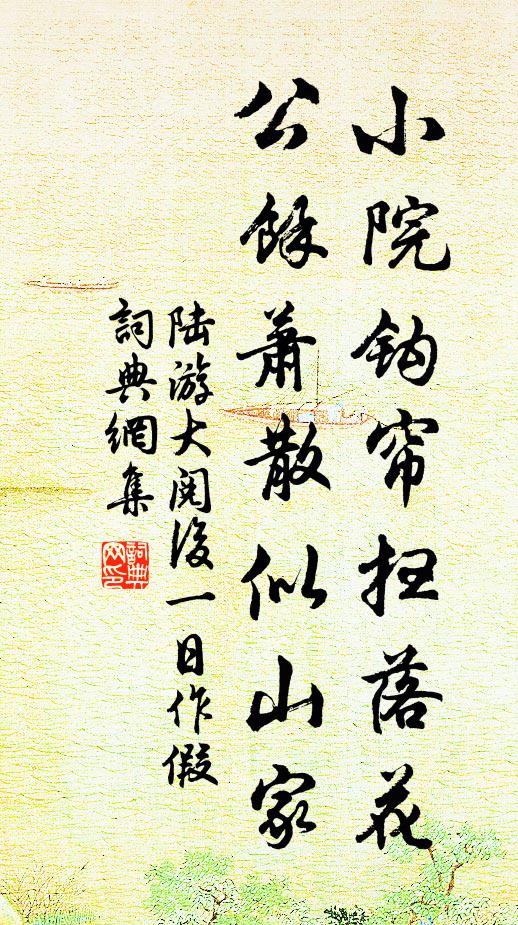 小院钩帘扫落花
公馀萧散似山家
陆游大阅后一日作假
詞典網集
詞典网印